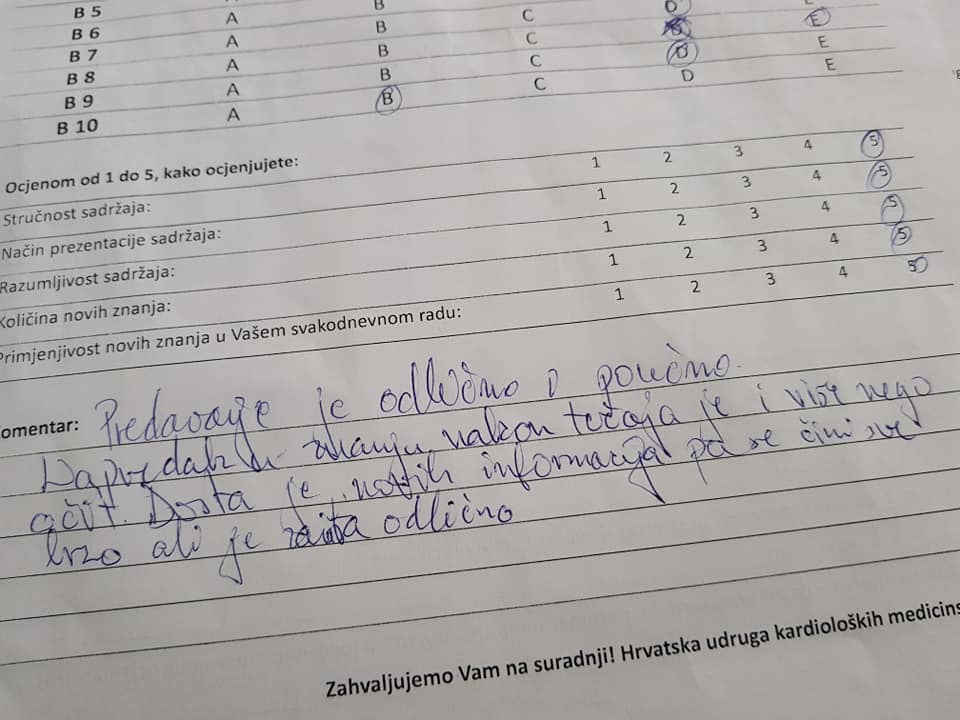 B 5
B 6 A B C D E
B 7 A B C B E
B 8 A B C D E
B 9 A B C D E
B 10 A B
Ocjenom od 1 do 5, kako ocjenjujete:
Stručnost sadržaja: 1 2 3 4 5
Način prezentacije sadržaja: 1 2 3 4 5
Razumljivost sadržaja: 1 2 3 4 5
Količina novih znanja: 1 2 3 4 5
Primjenjivost novih znanja u Vašem svakodnevnom radu: 1 2 3 4 5
omentar: Predavanje je odlično i poučno.
Napredak u znanju nakon tečaja je i više nego
očit. Dosta je novih informacija pa se čini sve
brzo ali je zaista odlično
Zahvaljujemo Vam na suradnji! Hrvatska udruga kardioloških medicins